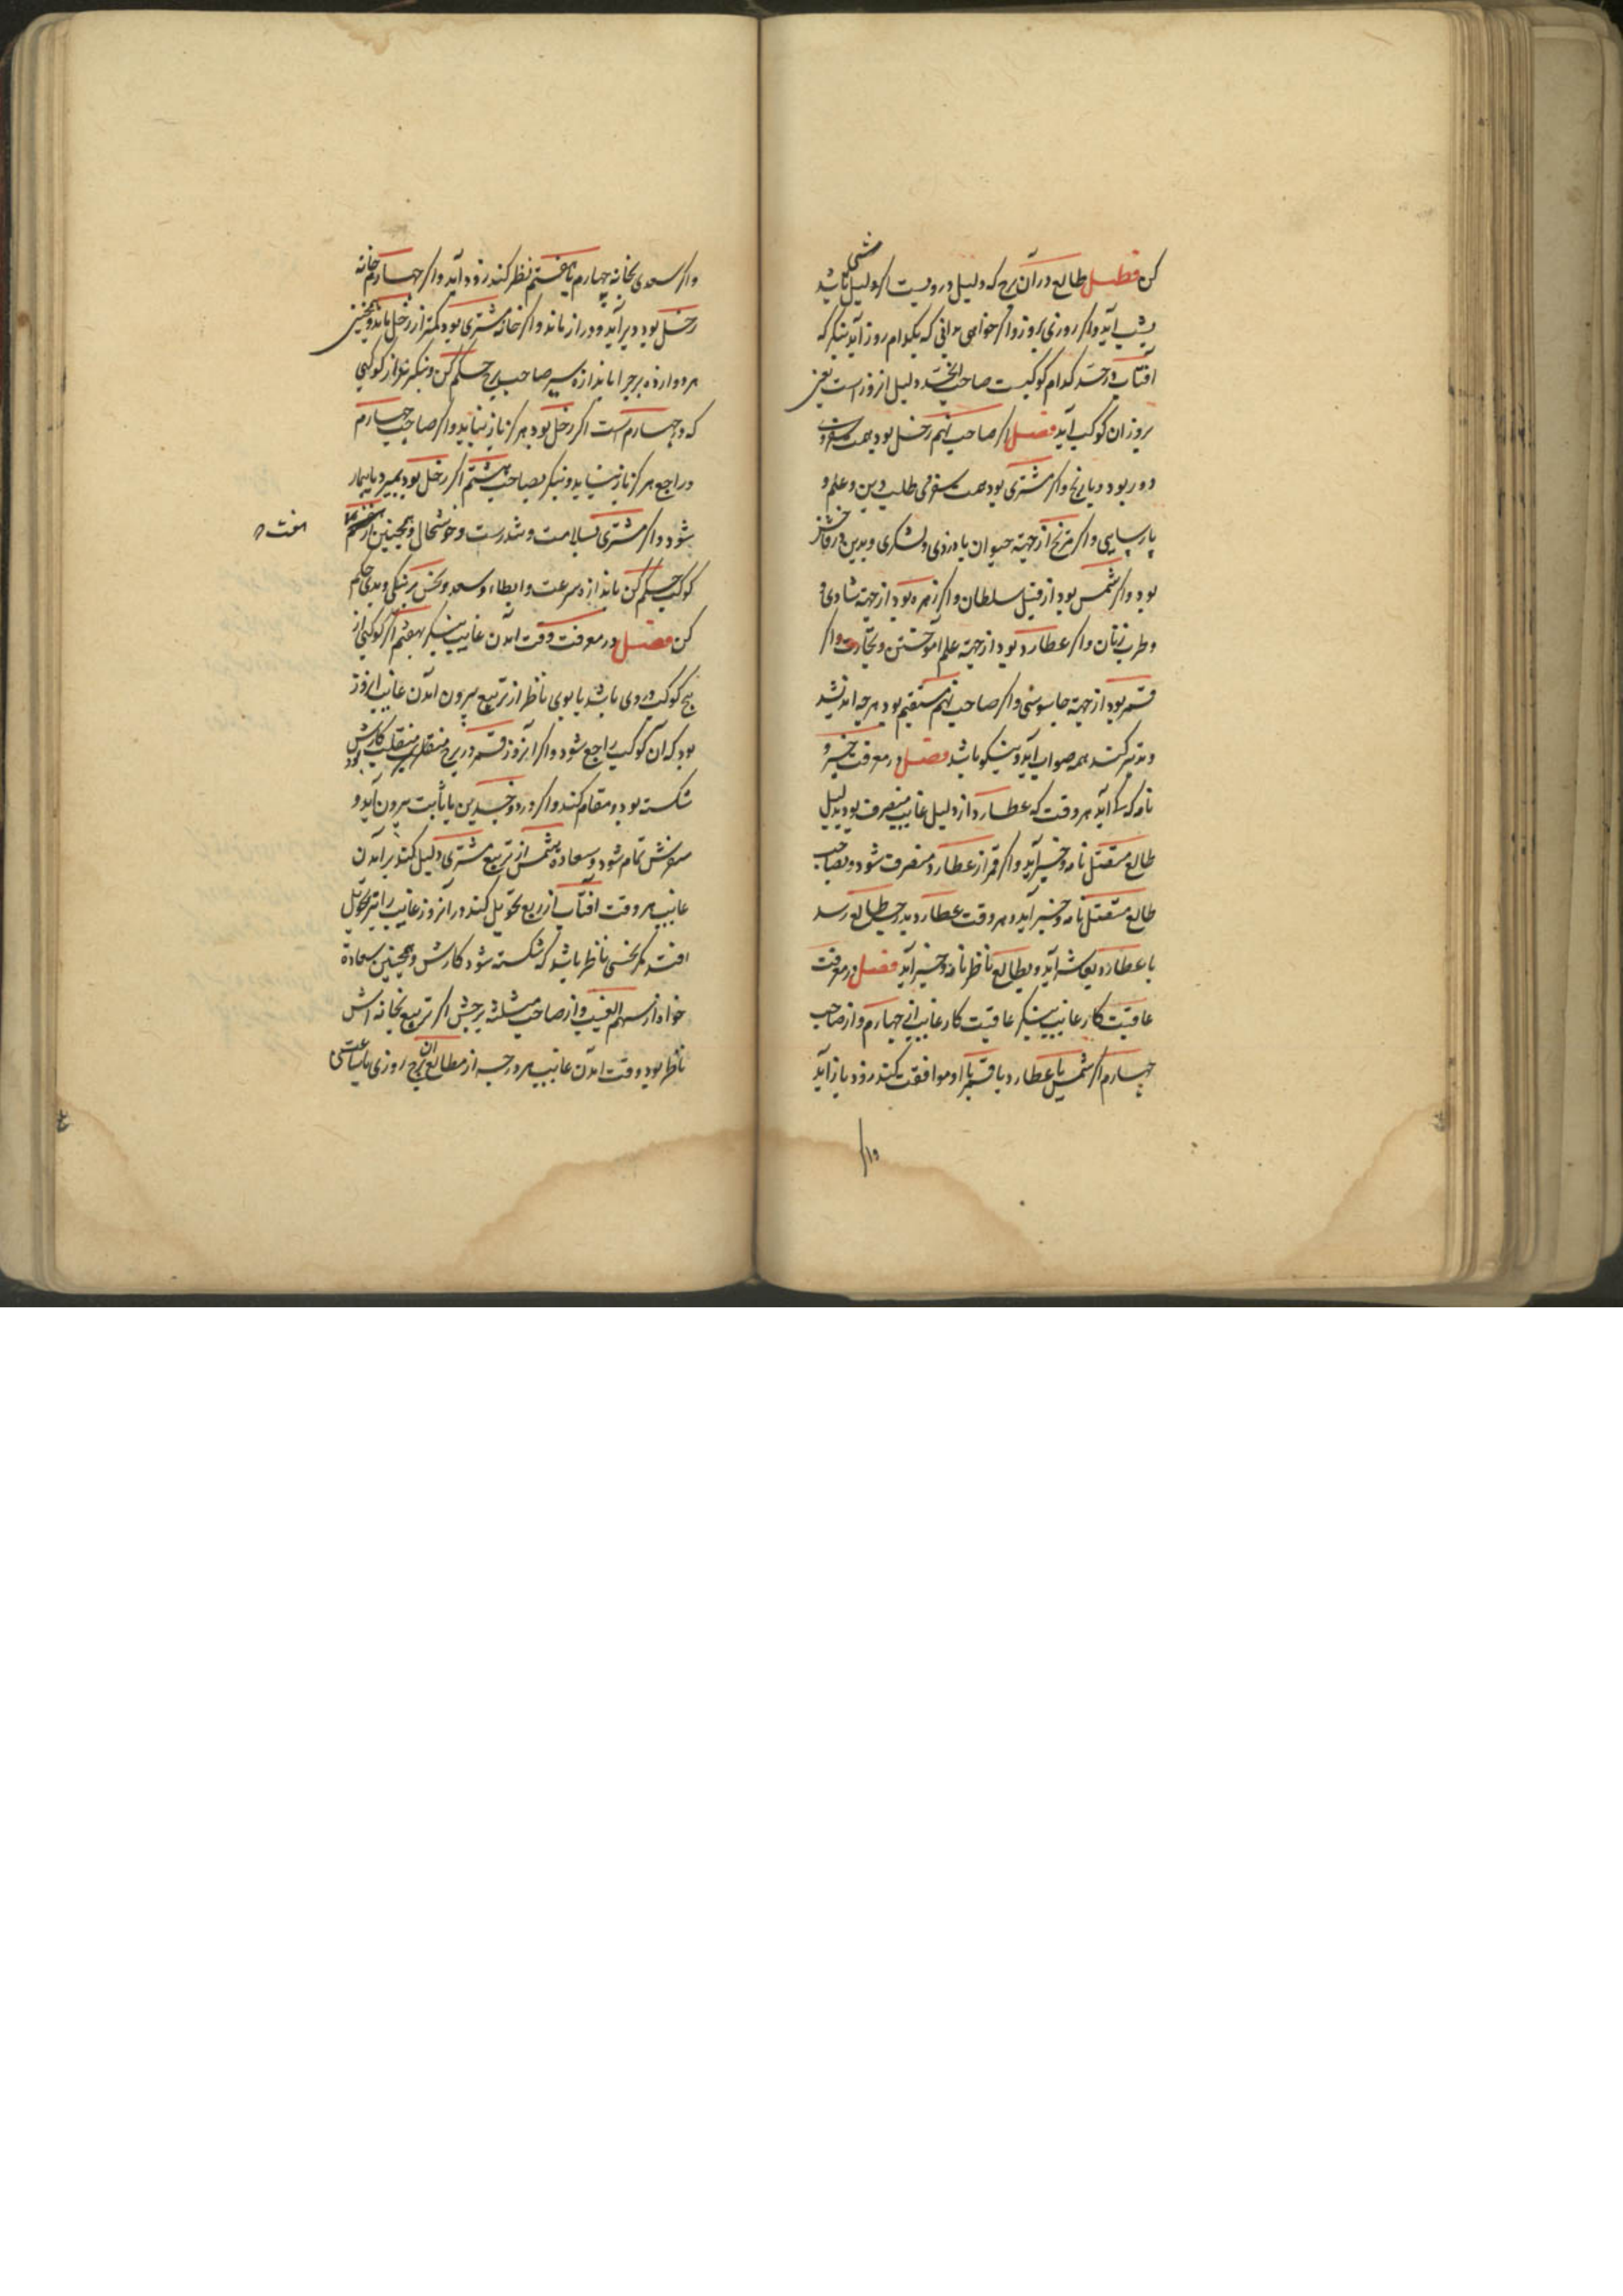 کن فصل طالع در آن برج که دلیل درویست اگر دلیل شبی باشد
بشب آید واگر روزی بروز واگر خواهی بدانی که بکدام روز آید بنگر که
آفتاب در حد کدام کوکبست صاحب الحد دلیل آنروز است یعنی
بروز ان کوکب آید فصل اگر صاحب نهم زحل بود سفر
دور بود و بتاریخ واگر مشتری بود سفر طلب دین و علم و
پارسایی واگر مریخ از جهت حیوان یا دزدی ولشکری و بدین
بود واگر شمس بود از قبل سلطان واگر زهره بود از جهت شادی
وطرب زنان واگر عطارد بود از جهت علم آموختن و تجارت واگر
قمر بود از جهت جاسوسی واگر صاحب نهم مستقیم بود هرچه اندیشد
وتدبیر کند همه صواب آید و نیکو باشد فصل در معرفت خبر و
نامه که کی آید هر وقت که عطارد از دلیل غایب منصرف بود بدلیل
طالع متصل نامه و خبر آید واگر قمر از عطارد منصرف شود و بصاحب
طالع متصل نامه و خبر آید و هر وقت عطارد بدرجه طالع رسد
یا عطارد بعاشر آید و بطالع ناظر نامه و خبر آید فصل در معرفت
عاقبت کار غایب بنگر عاقبت کار غایب از چهارم و از صاحب
چهارم اگر شمس با عطارد یا قمر با او موافقت کند زود باز آید
واگر
واگر سعدی بخانه چهارم یا هفتم نظر کند زود آید واگر چهارم خانه
زحل بود دیر آید و دراز ماند واگر خانه مشتری بود کمتر از زحل ماند و همچنین
هر دوازده برج را باندازه سیر صاحب برج حکم کن و بنگر تا از کوکبی
که در چهارم است اگر زحل بود هرگز باز نیاید واگر صاحب چهارم
در راجع هرگز باز نیاید و بنگر بصاحب هشتم اگر زحل بود بمیرد یا بیمار
شود واگر مشتری بسلامت و تندرست و خوشحال و همچنین از
هفت
کوکب حکم کن باندازه سرعت و ابطاء و سعد و نحس بر نیکی و بدی حکم
کن فصل در معرفت وقت آمدن غایب بنگر بهفتم اگر کوکبی از
پنج کوکب در وی باشد یا بوی ناظر از تربیع بیرون آمدن غایب آنروز
بود که آن کوکب راجع شود واگر آنروز قمر در برج منقلب کارش
شکسته بود و مقام کند واگر در ذوجسدین یا ثابت بیرون آید و
سفرش تمام شود و سعاده شمس از تربیع مشتری دلیل کند بر آمدن
غایب هر وقت آفتاب از ربع تحویل کند در آنروز غایب را نیز تحویل
افتد مگر نحسی ناظر باشد که شکسته شود کارش و همچنین سعادة
خواه از سهم الغیب و از صاحب مثلثه برجش اگر تربیع بخانه اش
ناظر بود وقت آمدن غایب هر درجه از مطالع آن برج روزی یا ساعتی